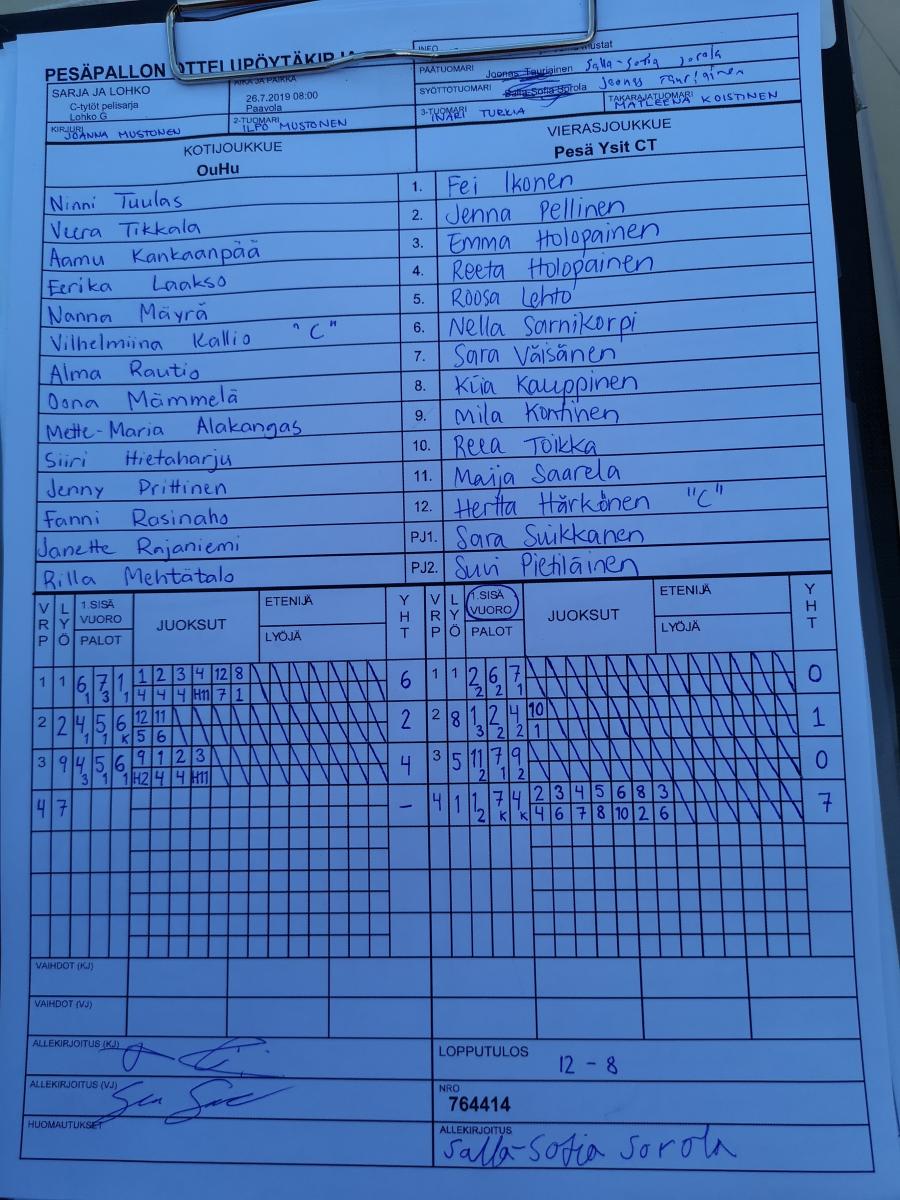 PESÄPALLON OTTELUPÖYTÄKIRJA
INFO
SARJA JA LOHKO
C-tytöt pelisarja
Lohko G
AIKA JA PAIKKA
26.7.2019 08:00
Paavola
PÄÄTUOMARI Joonas Tauriainen Salla-Sofia Sorola
SYÖTTÖTUOMARI Salla-Sofia Sorola Joonas Tauriainen
KIRJURI JOANNA MUSTONEN
2-TUOMARI ILPO MUSTONEN
3-TUOMARI INARI TURKIA
TAKARAJATUOMARI MATLEENA KOISTINEN
KOTIJOUKKUE
OuHu
VIERASJOUKKUE
Pesä Ysit CT
Ninni Tuulas 1. Fei Ikonen
Veera Tikkala 2. Jenna Pellinen
Aamu Kankaanpää 3. Emma Holopainen
Eerika Laakso 4. Reeta Holopainen
Nanna Mäyrä 5. Roosa Lehto
Vilhelmiina Kallio "C" 6. Nella Sarnikorpi
Alma Rautio 7. Sara Väisänen
Oona Mämmelä 8. Kiia Kauppinen
Mette-Maria Alakangas 9. Mila Kontinen
Siiri Hietaharju 10. Reea Toikka
Jenny Prittinen 11. Maija Saarela
Fanni Rasinaho 12. Hertta Härkönen "C"
Janette Rajaniemi PJ1. Sara Suikkanen
Rilla Mehtätalo PJ2. Suvi Pietiläinen
VRP LYÖ 1.SISÄ VUORO PALOT JUOKSUT ETENIJÄ LYÖJÄ YHT VRP LYÖ 1.SISÄ VUORO PALOT JUOKSUT ETENIJÄ LYÖJÄ YHT
1 1 6 7 1 1 2 3 4 12 8 6 1 1 2 6 7 0
1 3 1 4 4 4 H11 7 1 2 2 1
2 2 4 5 6 12 11 2 2 8 1 2 4 10 1
1 1 K 5 6 3 2 2 1
3 9 4 5 6 9 1 2 3 4 3 5 11 7 9 0
3 1 1 H2 4 4 H11 2 1 2
4 7 – 4 1 1 7 4 2 3 4 5 6 8 3 7
2 K K 4 6 7 8 10 2 6
VAIHDOT (KJ)
VAIHDOT (VJ)
ALLEKIRJOITUS (KJ)
LOPPUTULOS 12 - 8
ALLEKIRJOITUS (VJ)
NRO
764414
HUOMAUTUKSET
ALLEKIRJOITUS
Salla-Sofia Sorola